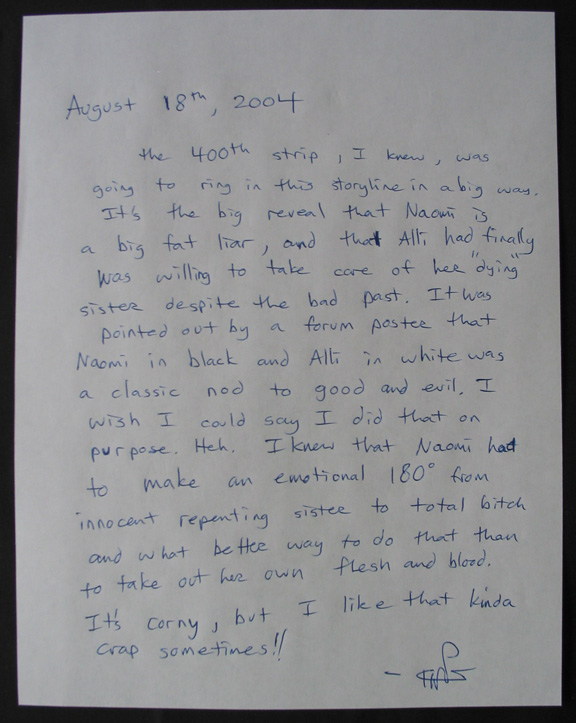 August 18th, 2004
the 400th strip, I knew, was
going to ring in this storyline in a big way.
It's the big reveal that Naomi is
a big fat liar, and that Alli had finally
was willing to take care of her "dying"
sister despite the bad past. It was
pointed out by a forum poster that
Naomi in black and Alli in white was
a classic nod to good and evil. I
wish I could say I did that on
purpose. Heh. I knew that Naomi had
to make an emotional 180° from
innocent repenting sister to total bitch
and what better way to do that than
to take out her own flesh and blood.
It's corny, but I like that kinda
crap sometimes!!